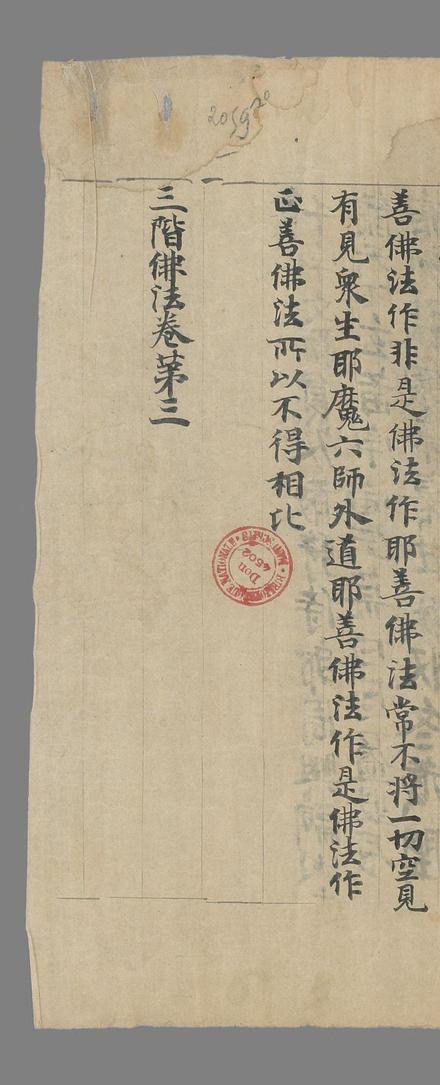 善佛法作非是佛法作耶善佛法常不將一切空見
有見衆生耶魔六師外道耶善佛法作是佛法作
正善佛法所以不得相比
三階佛法卷苐三
2059
BIBLIOTHEQUE NATIONALE MANUSCRITS
Don
4502